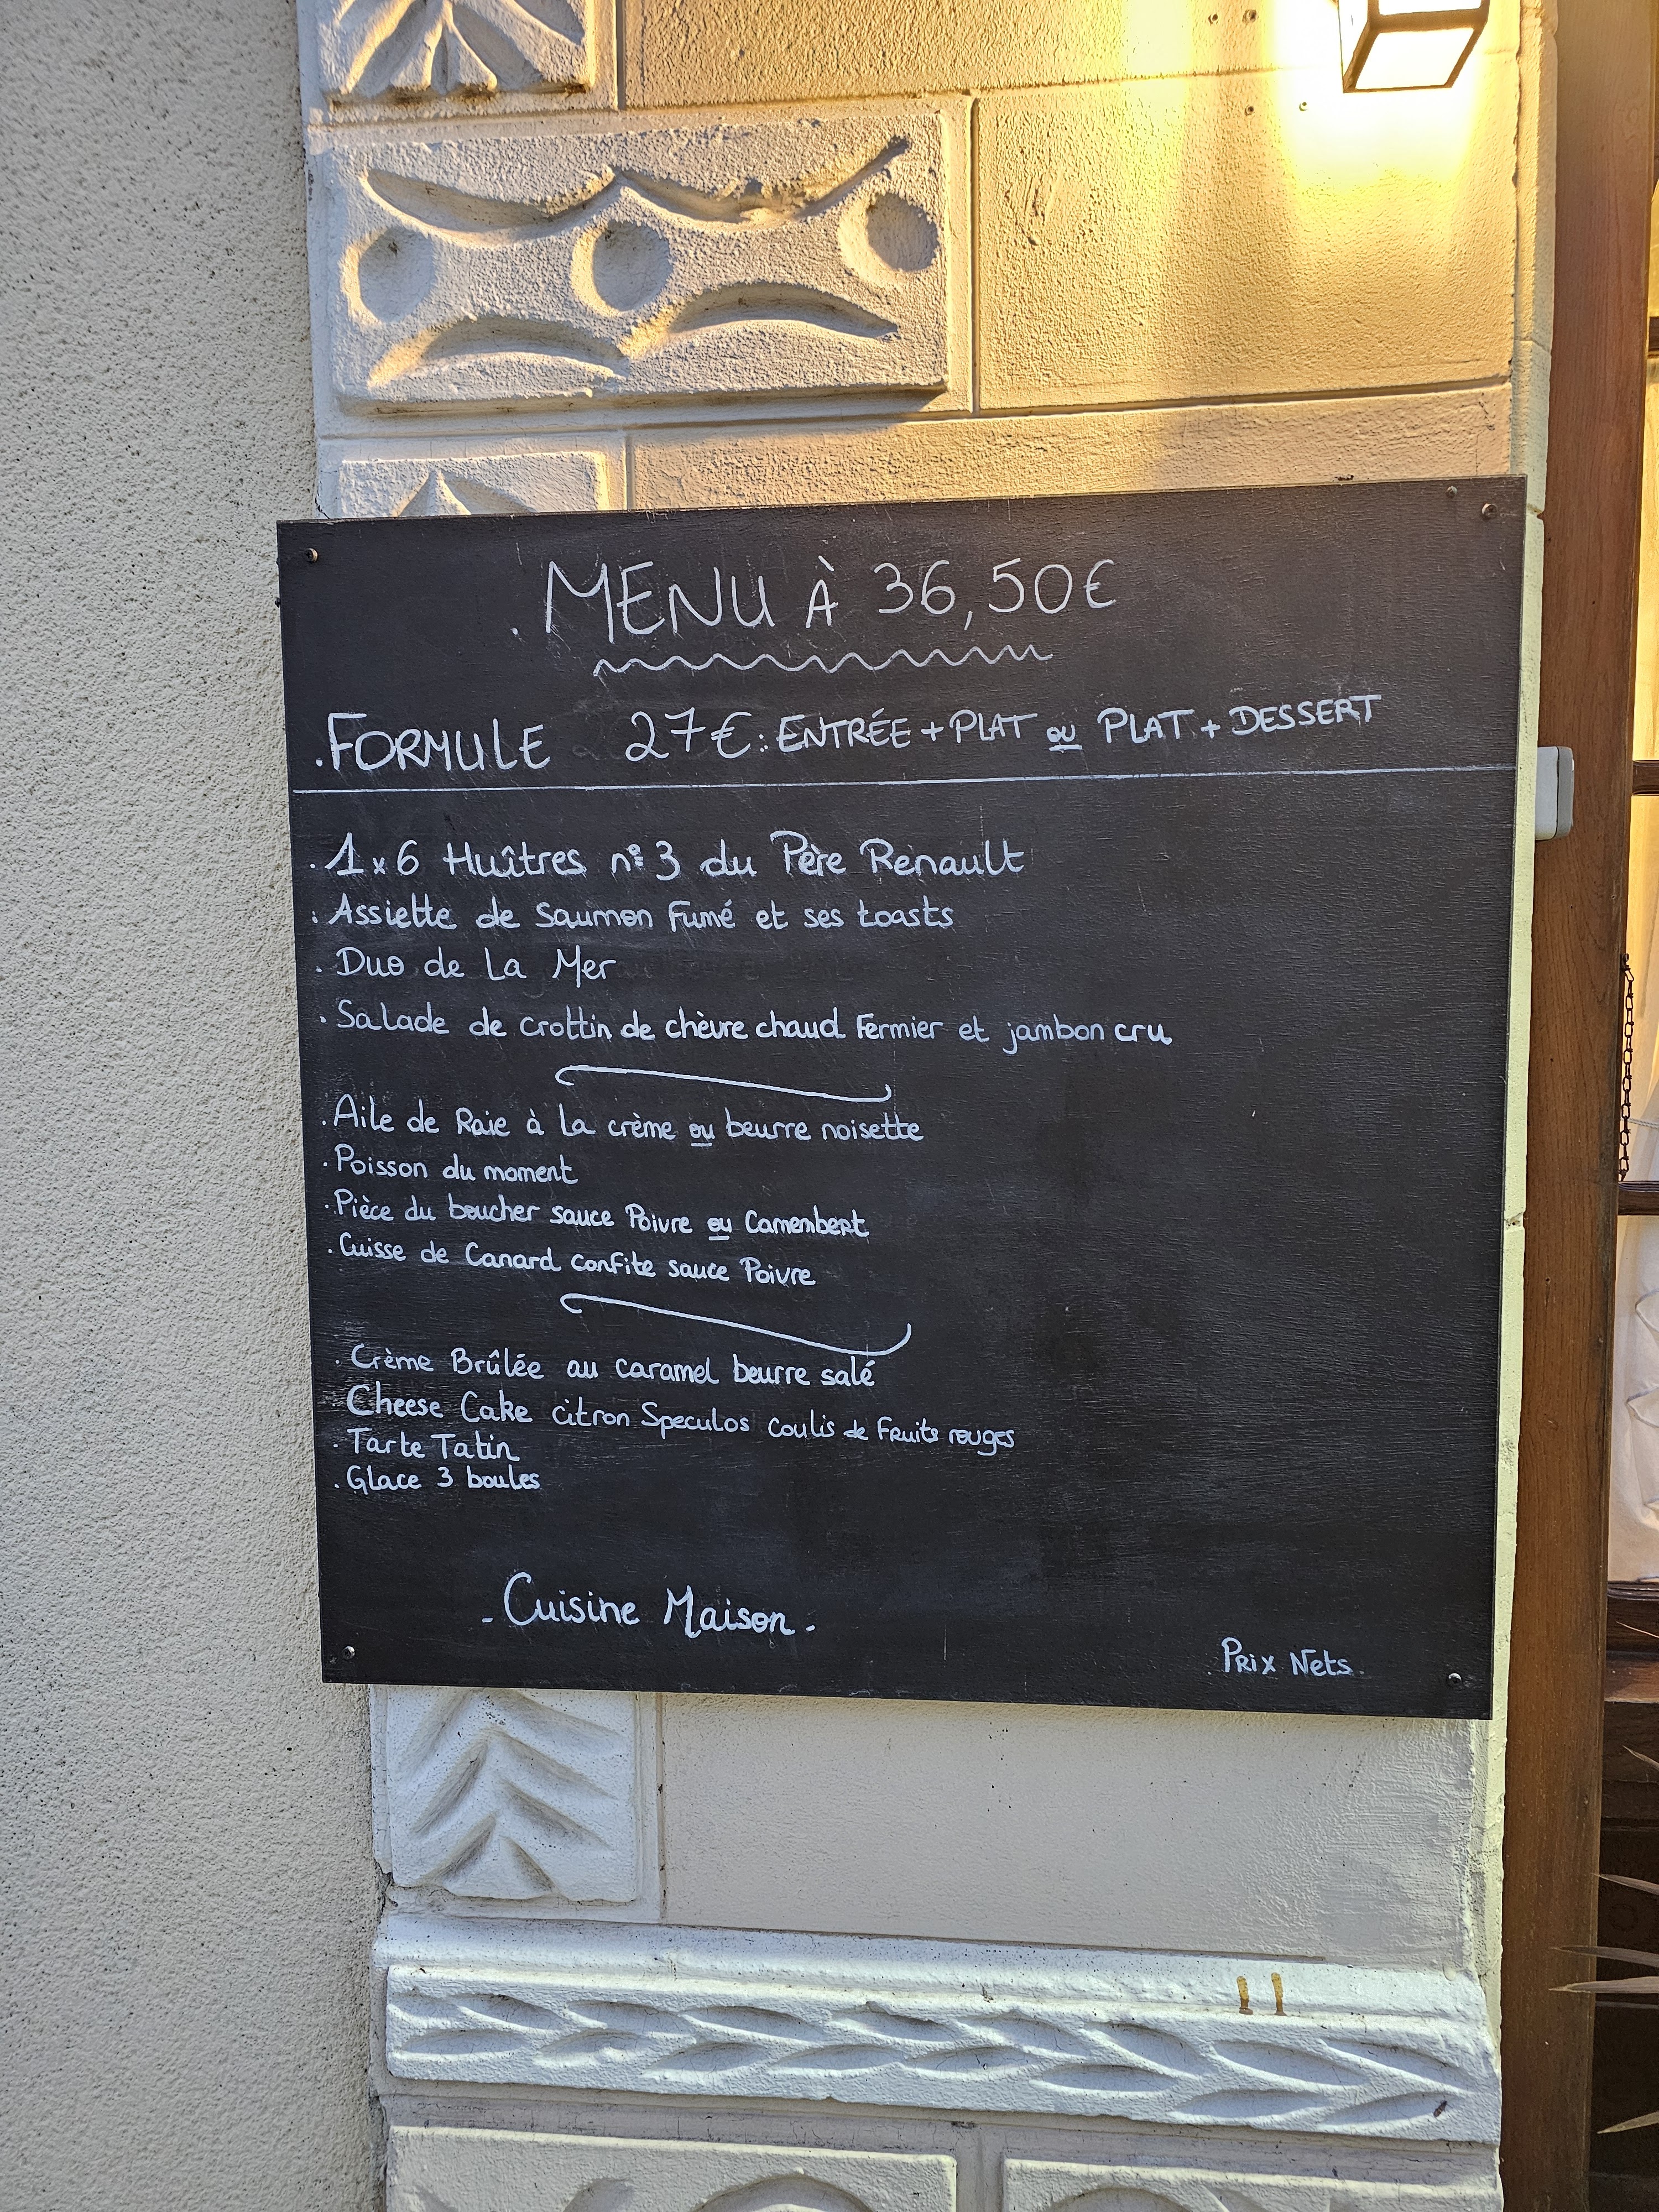 . MENU À 36,50€
. FORMULE 27€ : ENTRÉE + PLAT ou PLAT + DESSERT
. 1 x 6 Huîtres n°3 du Père Renault
. Assiette de Saumon Fumé et ses toasts
. Duo de La Mer
. Salade de crottin de chèvre chaud Fermier et jambon cru
. Aile de Raie à La crème ou beurre noisette
. Poisson du moment
. Pièce du boucher sauce Poivre ou Camembert
. Cuisse de Canard confite sauce Poivre
. Crème Brûlée au caramel beurre salé
Cheese Cake citron Speculos coulis de Fruits rouges
. Tarte Tatin
. Glace 3 boules
- Cuisine Maison -
Prix Nets